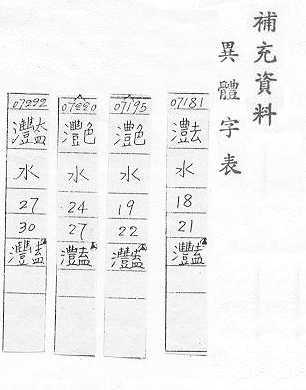 補充資料
異體字表
07181
水
18
21
灩
07195
灔
水
19
22
灩
灧
水
24
27
灩
07292
水
27
30
灩